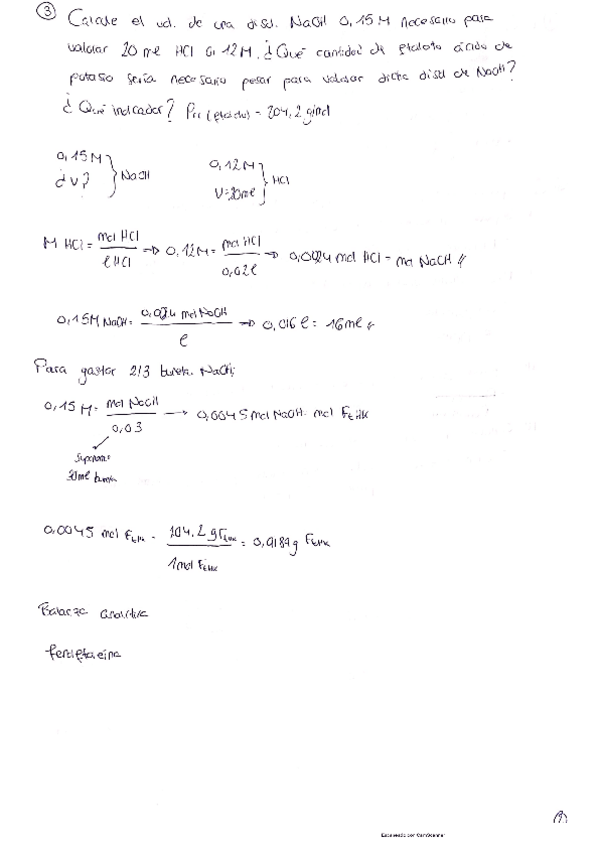 ③ Calcule el vol. de una disol. NaOH 0,15M necesario para
valorar 20 ml HCl 0,12M. ¿Qué cantidad de ftalato ácido de
potasio sería necesario pesar para valorar dicha disol de NaOH?
¿Qué indicador? Pm (ftalato) = 204,2 g/mol
0,15M
¿V? } NaOH
0,12M
V=20ml } HCl
M HCl = mol HCl / l HCl → 0,12M = mol HCl / 0,02l → 0,0024 mol HCl = mol NaOH //
0,15M NaOH = 0,0024 mol NaOH / l → 0,016 l = 16ml //
Para gastar 2/3 bureta NaOH:
0,15M = mol NaOH / 0,03 → 0,0045 mol NaOH = mol FtHK
30ml
0,0045 mol FtHK · 204,2 g FtHK / 1mol FtHK = 0,9189 g FtHK
Balanza analítica
fenolftaleina
Escaneado con CamScanner